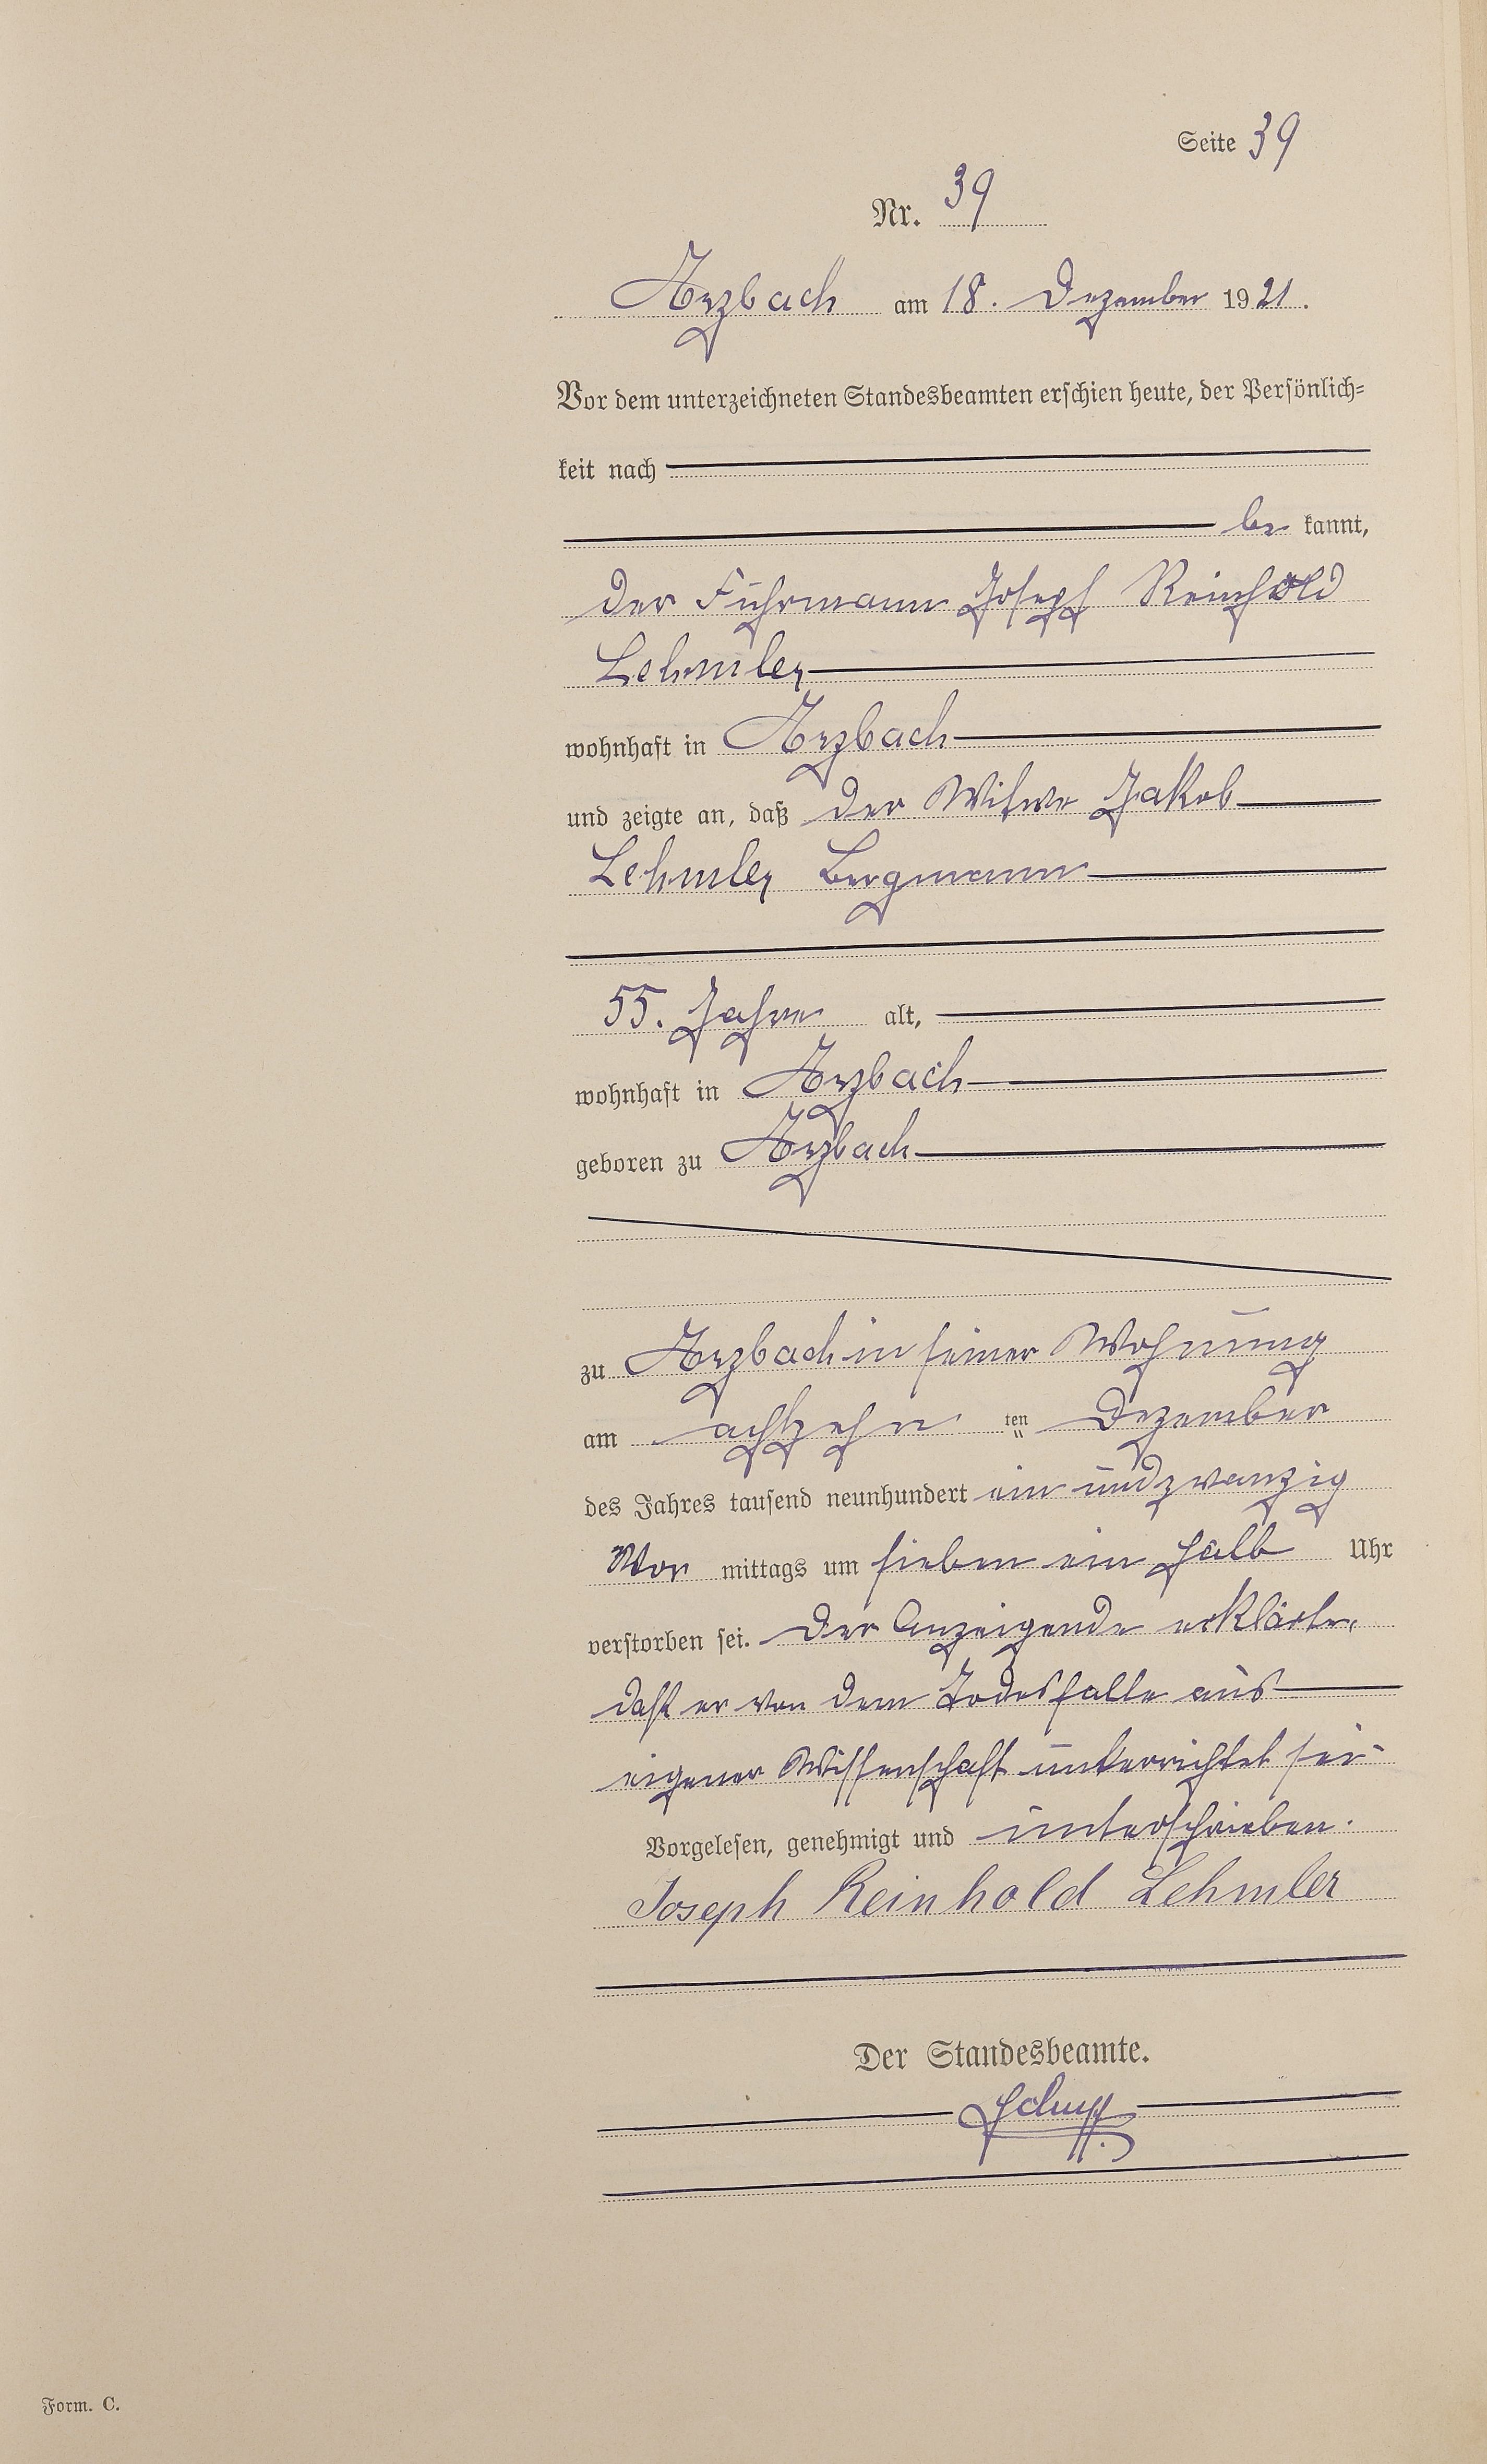 Seite 39
Nr. 39
Arzbach am 18. Dezember 1921.
Vor dem unterzeichneten Standesbeamten erschien heute, der Persönlich=
keit nach
be kannt,
der Fuhrmann Joseph Reinhold
Lehmler
wohnhaft in Arzbach
und zeigte an, daß der Witwe Jakob
Lehmler Bergmann
55. Jahre alt,
wohnhaft in Arzbach
geboren zu Arzbach
zu Arzbach in seiner Wohnung
am achtzehn ten Dezember
des Jahres tausend neunhundert ein undzwanzig
Vor mittags um sieben ein halb Uhr
verstorben sei. Der Anzeigende erklärte,
daß er von dem Todesfalle aus
eigener Wissenschaft unterrichtet sei.
Vorgelesen, genehmigt und unterschrieben.
Joseph Reinhold Lehmler
Der Standesbeamte.
Form. C.